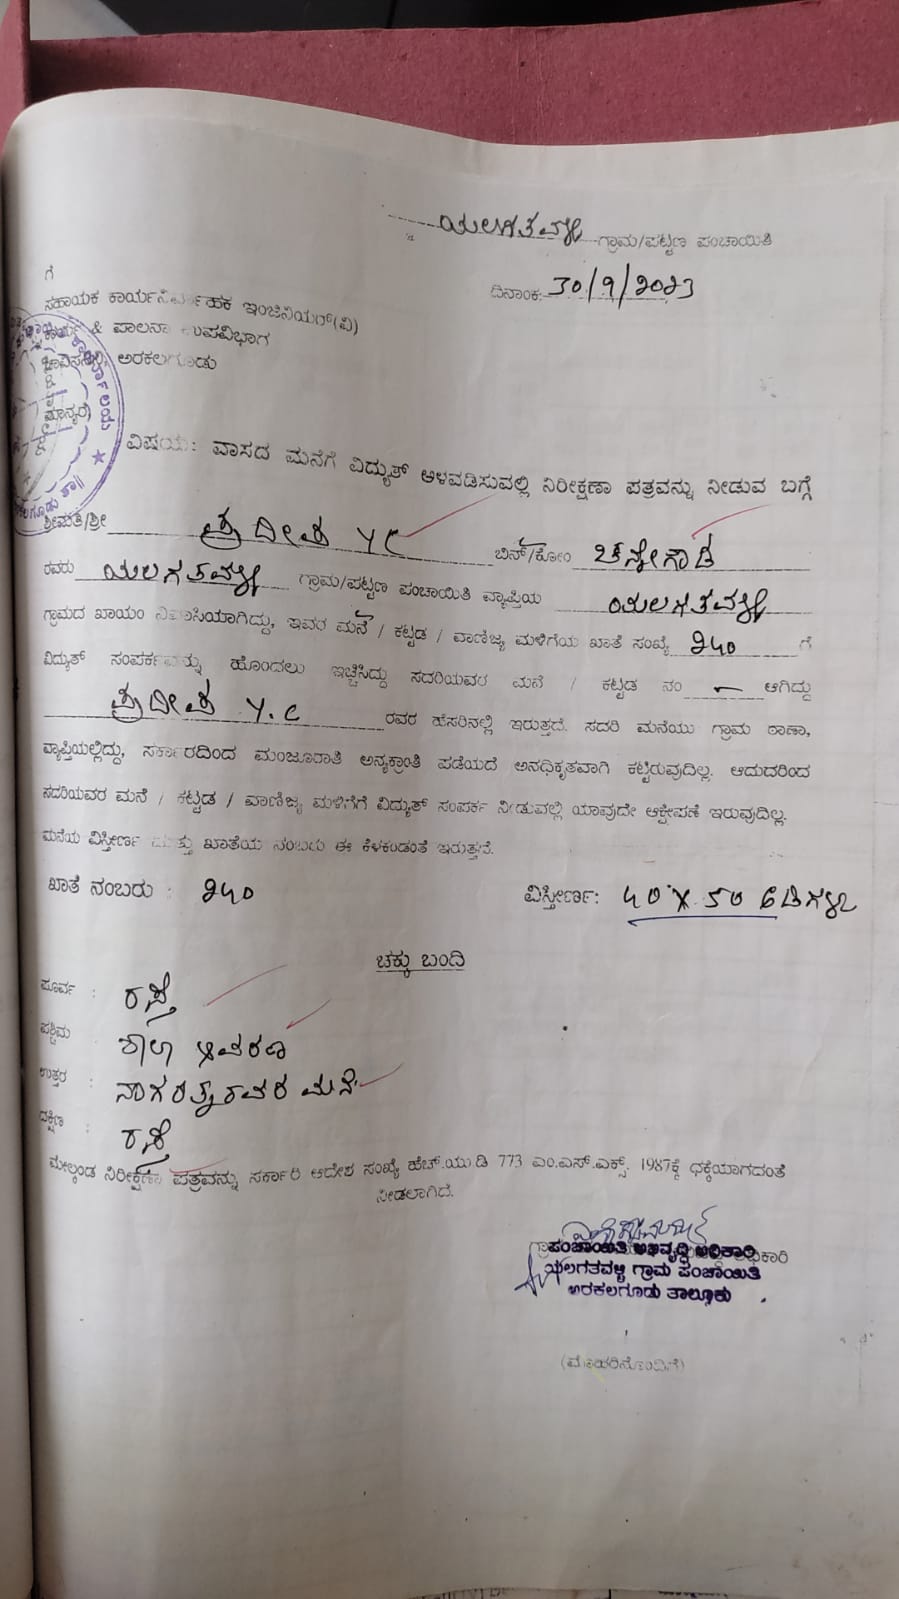 ಯಲಗತವಳ್ಳಿ ಗ್ರಾಮ/ಪಟ್ಟಣ ಪಂಚಾಯಿತಿ
ದಿನಾಂಕ: 30/9/2023
ಗೆ
ಸಹಾಯಕ ಕಾರ್ಯನಿರ್ವಾಹಕ ಇಂಜಿನಿಯರ್(ವಿ)
ಕಾರ್ಯ & ಪಾಲನಾ ಉಪವಿಭಾಗ
ಚಾವಿಸನಿನಿ, ಅರಕಲಗೂಡು
ಮಾನ್ಯರೆ,
ವಿಷಯ: ವಾಸದ ಮನೆಗೆ ವಿದ್ಯುತ್ ಅಳವಡಿಸುವಲ್ಲಿ ನಿರೀಕ್ಷಣಾ ಪತ್ರವನ್ನು ನೀಡುವ ಬಗ್ಗೆ
ಶ್ರೀಮತಿ/ಶ್ರೀ ಪ್ರದೀಪ Y C ಬಿನ್/ಕೋಂ ಚನ್ನೇಗೌಡ
ರವರು ಯಲಗತವಳ್ಳಿ ಗ್ರಾಮ/ಪಟ್ಟಣ ಪಂಚಾಯಿತಿ ವ್ಯಾಪ್ತಿಯ ಯಲಗತವಳ್ಳಿ
ಗ್ರಾಮದ ಖಾಯಂ ನಿವಾಸಿಯಾಗಿದ್ದು, ಇವರ ಮನೆ / ಕಟ್ಟಡ / ವಾಣಿಜ್ಯ ಮಳಿಗೆಯ ಖಾತೆ ಸಂಖ್ಯೆ 240 ಗೆ
ವಿದ್ಯುತ್ ಸಂಪರ್ಕವನ್ನು ಹೊಂದಲು ಇಚ್ಚಿಸಿದ್ದು ಸದರಿಯವರ ಮನೆ / ಕಟ್ಟಡ ನಂ - ಆಗಿದ್ದು
ಪ್ರದೀಪ Y.C ರವರ ಹೆಸರಿನಲ್ಲಿ ಇರುತ್ತದೆ. ಸದರಿ ಮನೆಯು ಗ್ರಾಮ ಠಾಣಾ,
ವ್ಯಾಪ್ತಿಯಲ್ಲಿದ್ದು, ಸರ್ಕಾರದಿಂದ ಮಂಜೂರಾತಿ ಅನ್ಯಕ್ರಾಂತಿ ಪಡೆಯದೆ ಅನಧಿಕೃತವಾಗಿ ಕಟ್ಟಿರುವುದಿಲ್ಲ. ಆದುದರಿಂದ
ಸದರಿಯವರ ಮನೆ / ಕಟ್ಟಡ / ವಾಣಿಜ್ಯ ಮಳಿಗೆಗೆ ವಿದ್ಯುತ್ ಸಂಪರ್ಕ ನೀಡುವಲ್ಲಿ ಯಾವುದೇ ಆಕ್ಷೇಪಣೆ ಇರುವುದಿಲ್ಲ.
ಮನೆಯ ವಿಸ್ತೀರ್ಣ ಮತ್ತು ಖಾತೆಯ ನಂಬರು ಈ ಕೆಳಕಂಡಂತೆ ಇರುತ್ತದೆ.
ಖಾತೆ ನಂಬರು : 240 ವಿಸ್ತೀರ್ಣ: 40 X 50 ಅಡಿಗಳು
ಚಕ್ಕು ಬಂದಿ
ಪೂರ್ವ : ರಸ್ತೆ
ಪಶ್ಚಿಮ : ಶಾಲಾ ಆವರಣ
ಉತ್ತರ : ನಾಗರತ್ನರವರ ಮನೆ
ದಕ್ಷಿಣ : ರಸ್ತೆ
ಮೇಲ್ಕಂಡ ನಿರೀಕ್ಷಣಾ ಪತ್ರವನ್ನು ಸರ್ಕಾರಿ ಆದೇಶ ಸಂಖ್ಯೆ ಹೆಚ್.ಯು.ಡಿ 773 ಎಂ.ಎಸ್.ಎಕ್ಸ್. 1987ಕ್ಕೆ ಧಕ್ಕೆಯಾಗದಂತೆ
ನೀಡಲಾಗಿದೆ.
ಪಂಚಾಯಿತಿ ಅಭಿವೃದ್ಧಿ ಅಧಿಕಾರಿ
ಯಲಗತವಳ್ಳಿ ಗ್ರಾಮ ಪಂಚಾಯಿತಿ
ಅರಕಲಗೂಡು ತಾಲ್ಲೂಕು
(ಮೊಹರಿನೊಂದಿಗೆ)